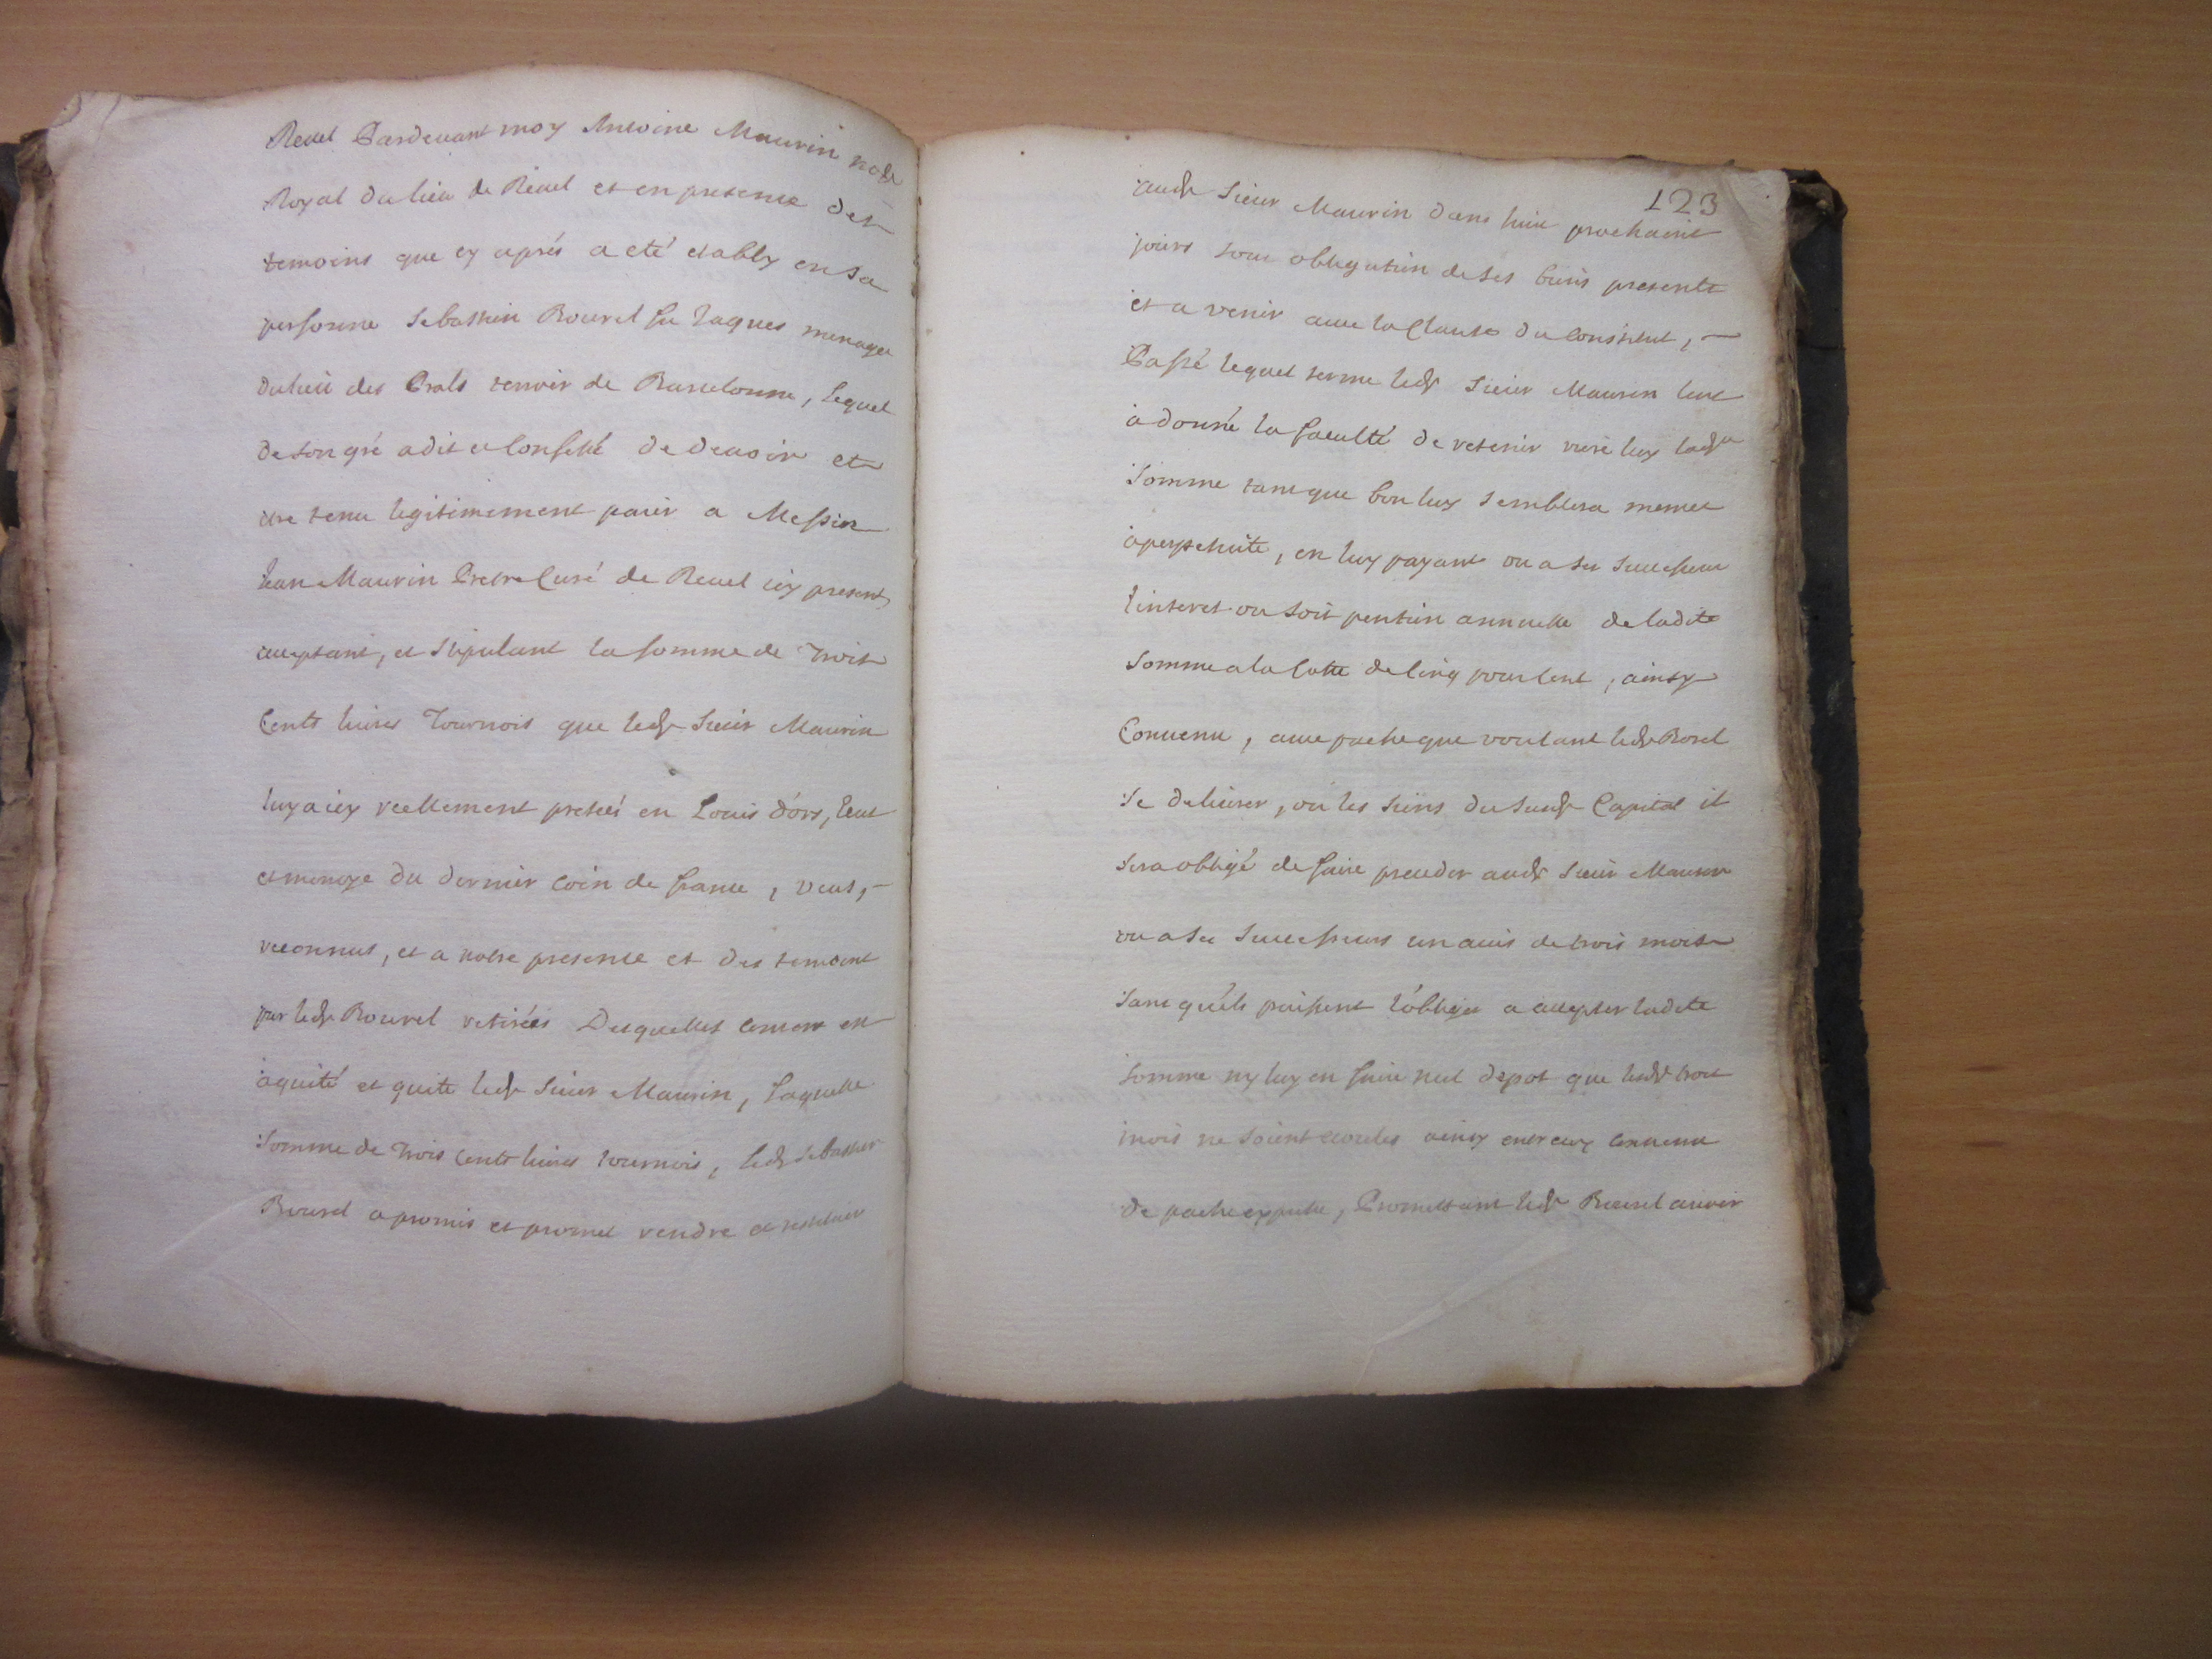 Revel Pardevant moy Antoine Maurin nore
Royal du lieu de Revel et en presence des
temoins que cy aprés a eté étably en sa
personne Sebastien Bourel fu Jaques menager
du lieu des Prats terroir de Barcelonne, Lequel
de son gré a dit et Confessé de devoir et
être tenu legitimement paier a Messire
Jean Maurin Pretre Curé de Revel icy present,
acceptant, et stipulant la somme de Trois
Cents livres Tournois que ledt Sieur Maurin
luy a icy reellement pretéés en Louis d'ors, Ecus
et monoye du dernier Coin de france, veus,
reconnus, et a notre presence et des temoins
par ledt Bourel retiréés Desquelles Comme en
aquité et quite ledt Sieur Maurin, Laquelle
Somme de Trois Cents livres tournois, ledt Sebastien
Bourel a promis et promet rendre et restituer
123
audt Sieur Maurin dans huit prochains
jours sous obligation de ses biens presents
et a venir avec la Clause du Constitut,
Passé lequel terme ledt Sieur Maurin luy
a donné la faculté de retenir riere luy ladte
Somme tant que bon luy semblera memes
a perpetuité, en luy payant ou a ses Successeurs
linteret ou soit pention annuelle de ladite
Somme a la Cotte de Cinq pour Cent, ainsy
Convenu, avec pache que voulant ledt Borel
se delivrer, ou les siens du susdt Capital il
sera obligé de faire preceder audt Sieur Maurin
ou a ses Successeurs un avis de trois mois
sans qu'ils puissent l'obliger a accepter ladite
Somme ny luy en faire nul depot que lesdt trois
mois ne soient écoulés ainsy entre eux Convenu
de pache expresse, Promettant ledt Bourel avoir